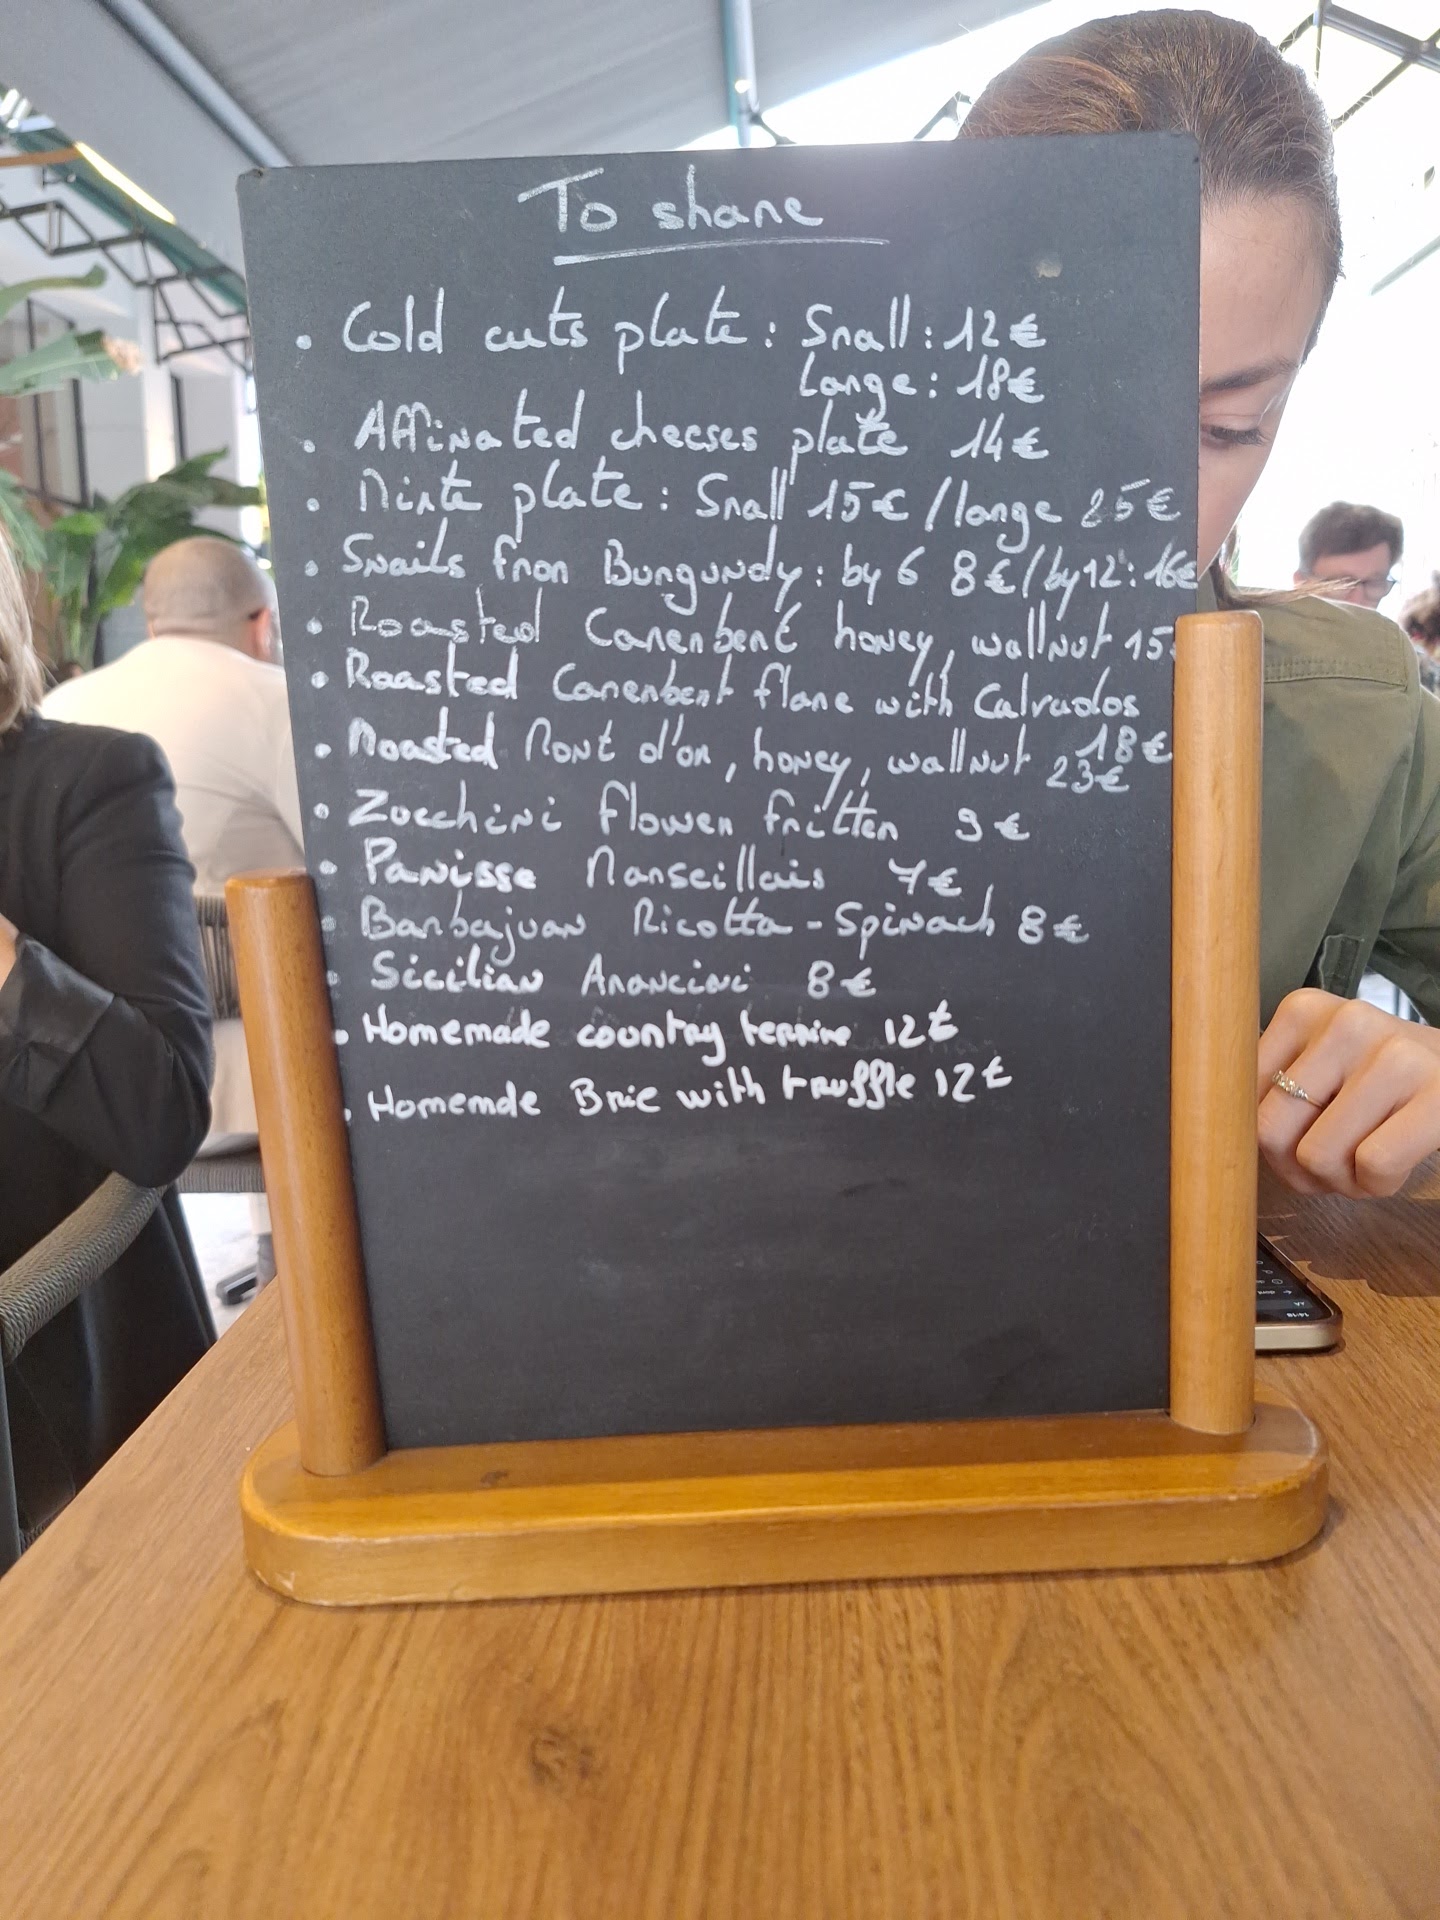 To share
• Cold cuts plate : Small : 12€
Large : 18€
• Affinated cheeses plate 14€
• Mixte plate : Small 15€ / large 25€
• Snails from Burgundy : by 6 8€ / by 12 : 16€
• Roasted Camembert honey, wallnut 15
• Roasted Camembert flame with Calvados
18€
• Roasted Mont d'or, honey, wallnut 23€
• Zucchini flower fritten 9€
• Panisse Marseillais 7€
• Barbajuan Ricotta - Spinach 8€
• Sicilian Arancini 8€
• Homemade country terrine 12€
• Homemde Brie with truffle 12€
14:18